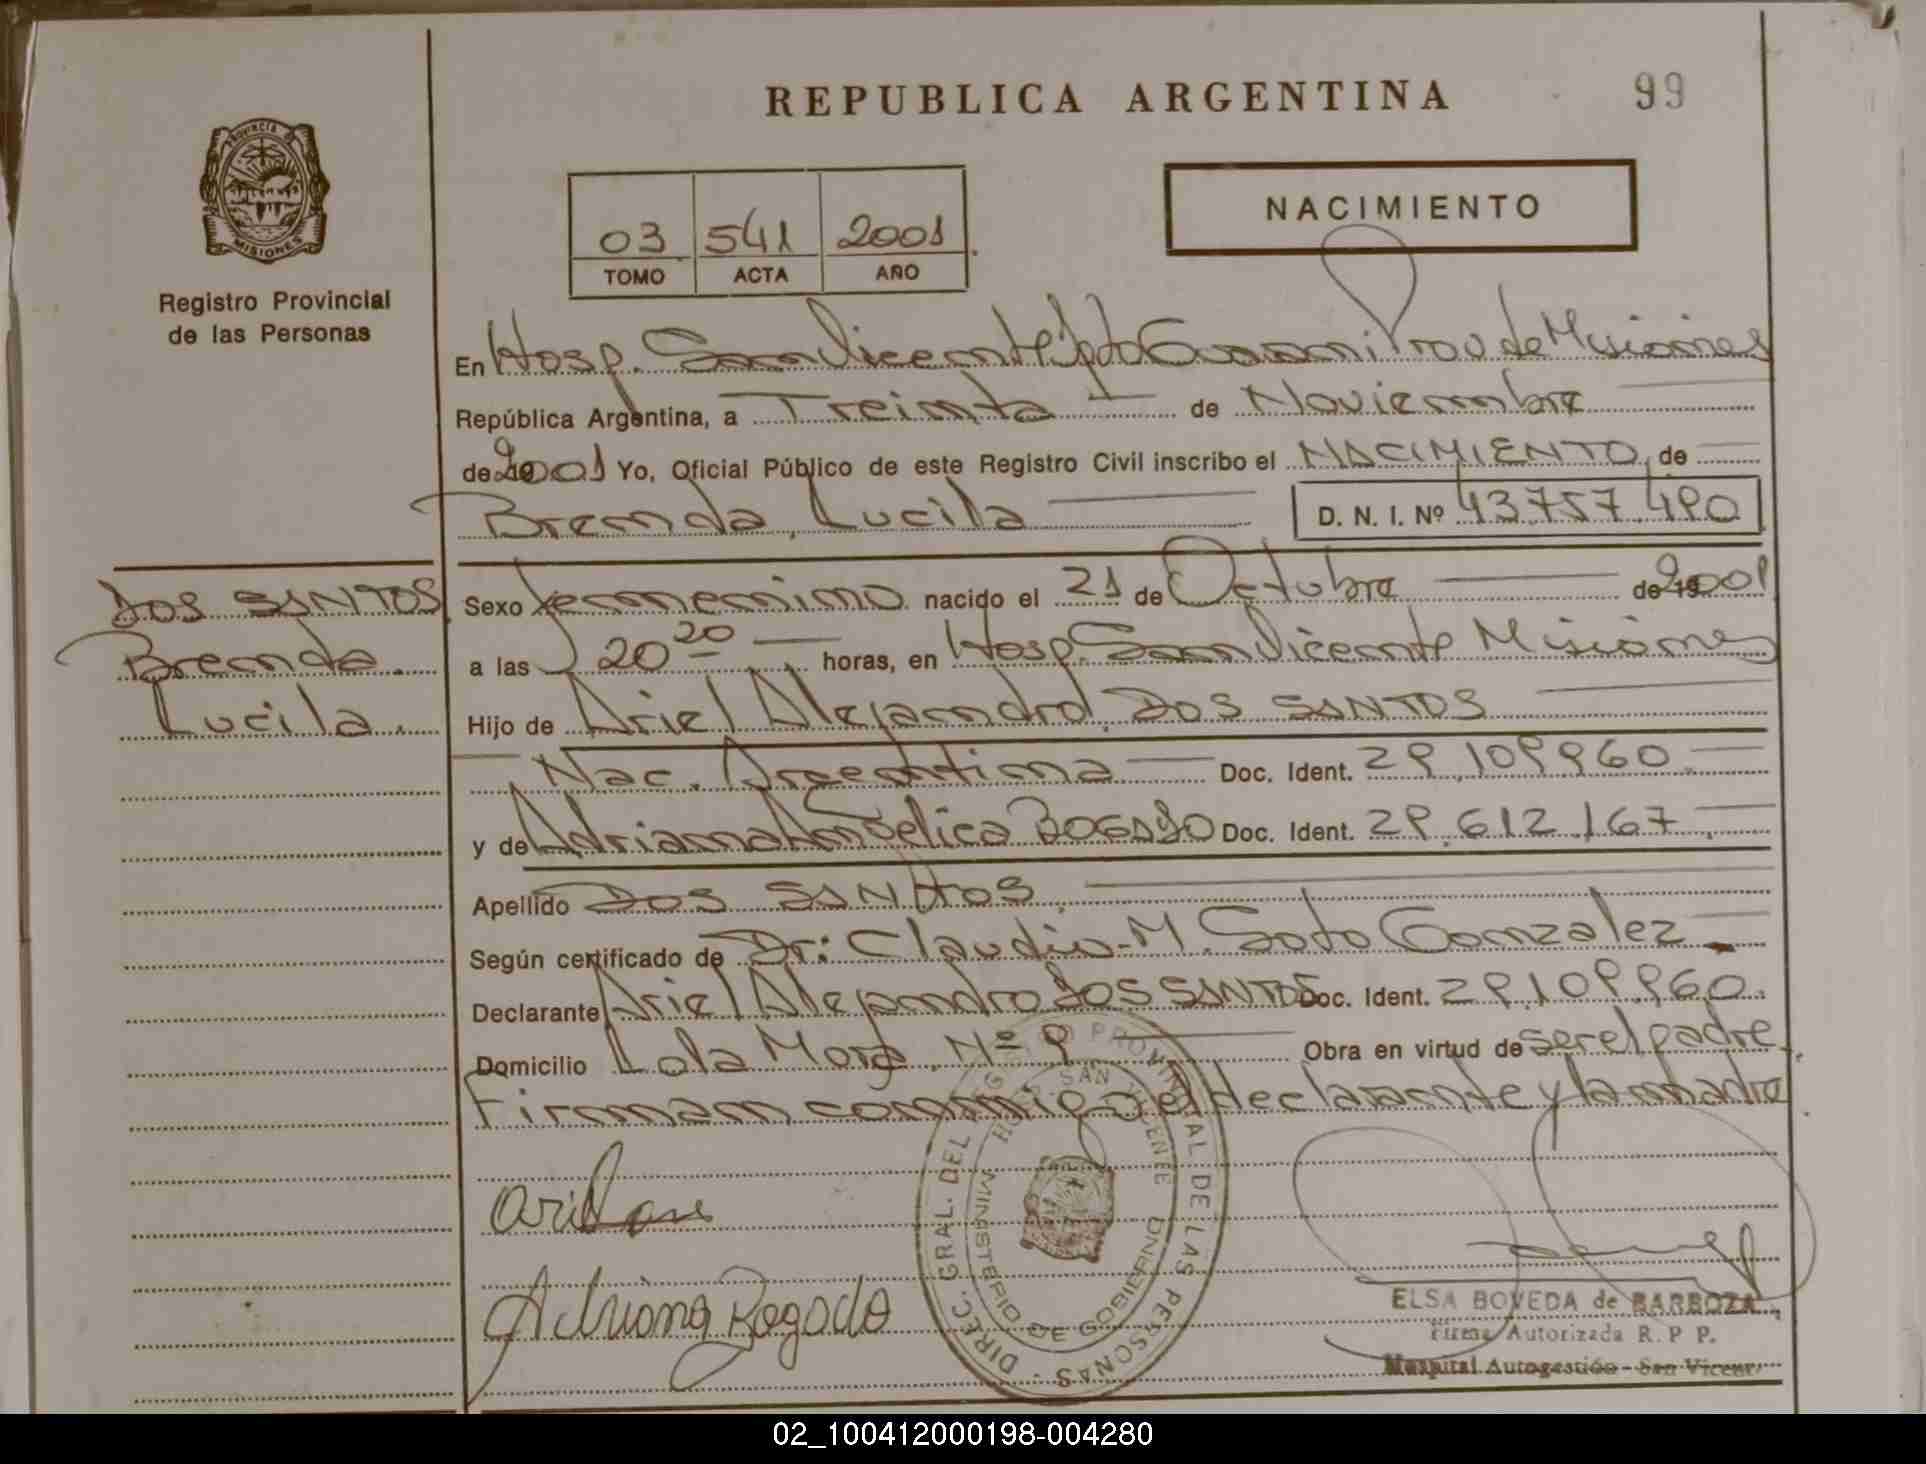 REPUBLICA ARGENTINA
99
PROVINCIA DE
MISIONES
Registro Provincial
de las Personas
03 541 2001
TOMO ACTA AÑO
NACIMIENTO
En Hosp. San Vicente Dpto Guarani Prov de Misiones
República Argentina, a Treinta de Noviembre
de 2001 Yo, Oficial Público de este Registro Civil inscribo el NACIMIENTO, de
Brenda Lucila D. N. I. Nº 43.757.490
DOS SANTOS
Brenda
Lucila
Sexo femenino nacido el 21 de Octubre de 19 2001
a las 20 20 horas, en Hosp. San Vicente Misiones
Hijo de Ariel Alejandro DOS SANTOS
Nac. Argentina Doc. Ident. 29.109960
y de Adriana Angelica BOGADO Doc. Ident. 29.612.167
Apellido DOS SANTOS
Según certificado de Dr: Claudio M. Soto Gonzalez
Declarante Ariel Alejandro DOS SANTOS Doc. Ident. 29.109.960
Domicilio Lola Mora Nº 9 Obra en virtud de ser el padre
Firman conmigo el declarante y la madre
Adriana Bogado
DIREC. GRAL. DEL REGISTRO PROVINCIAL DE LAS PERSONAS
HOSP. SAN VICENTE
MINISTERIO DE GOBIERNO
ELSA BOVEDA de BARBOZA
Firma Autorizada R. P P.
Hospital Autogestión - San Vicente
02_100412000198-004280